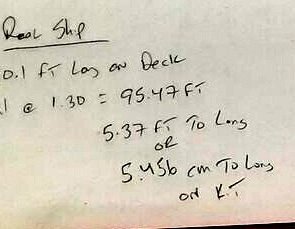 Real Ship
0.1 FT Long on Deck
1 @ 1.30 = 95.47 FT
5.37 FT To Long
OR
5.456 cm To Long
on KIT